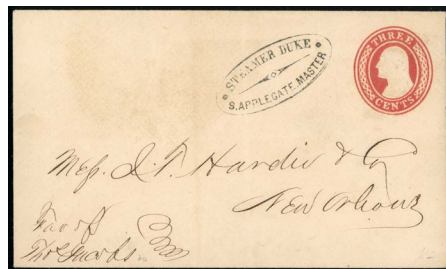 STEAMER DUKE
S. APPLEGATE. MASTER
THREE
CENTS
Mess. J. T. Hardie & Co
New Orleans
Favor of
Thos Jacobs